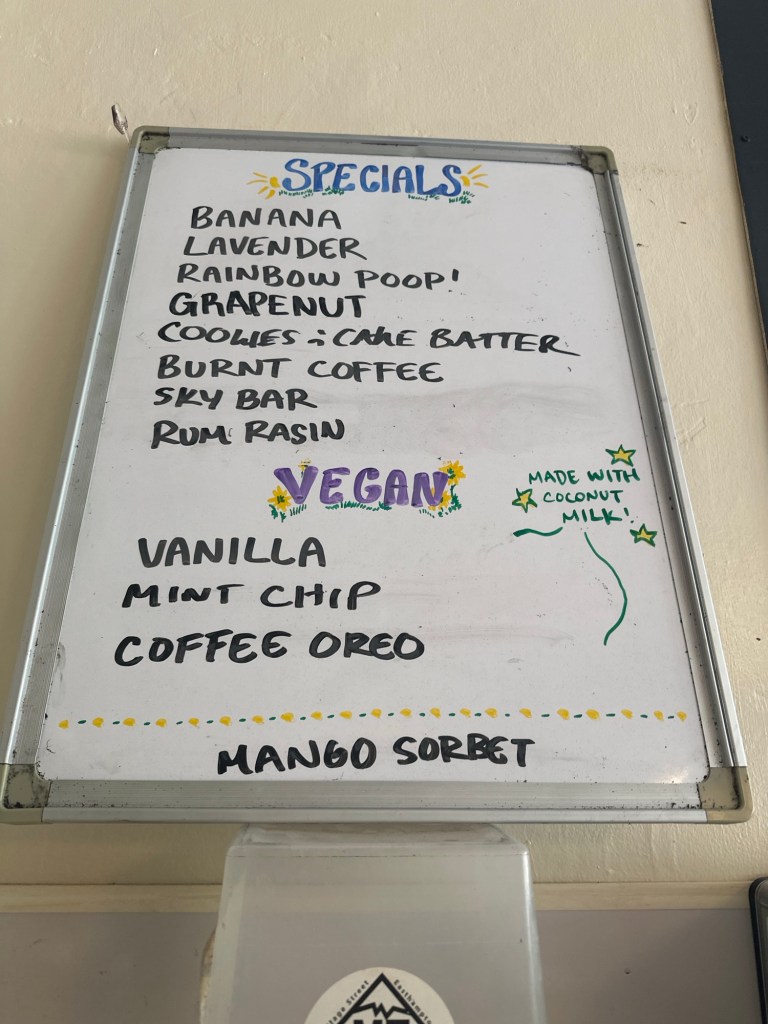 SPECIALS
BANANA
LAVENDER
RAINBOW POOP!
GRAPENUT
COOKIES & CAKE BATTER
BURNT COFFEE
SKY BAR
RUM RASIN
VEGAN
MADE WITH
COCONUT
MILK!
VANILLA
MINT CHIP
COFFEE OREO
MANGO SORBET